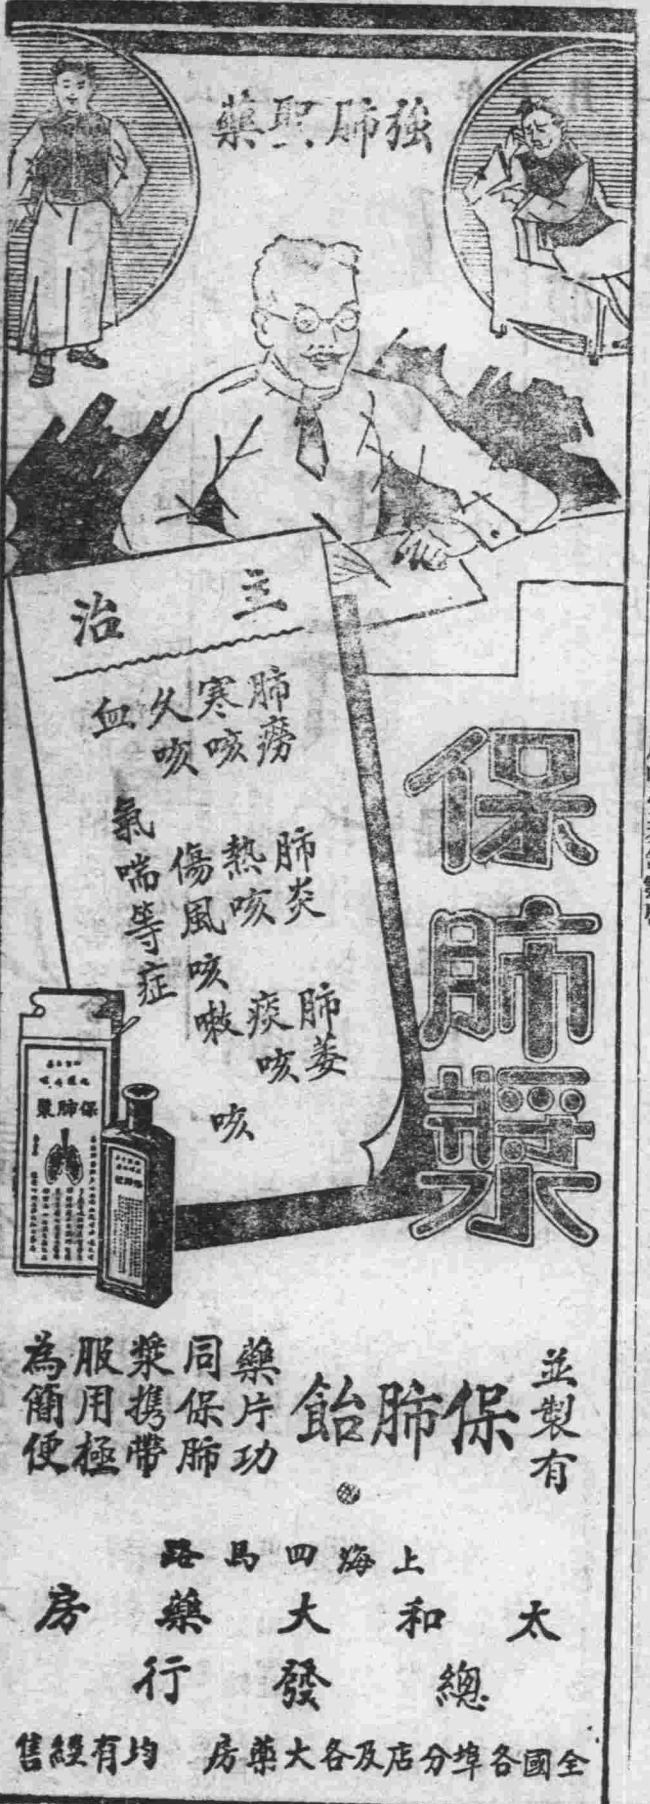 強肺聖藥
主治
肺癆 肺炎 肺萎
寒咳 熱咳 痰咳
久咳 傷風咳嗽 咳
血 氣喘等症
保肺漿
保肺漿
並製有
保肺飴
藥片功
同保肺
漿攜帶
服用極
為簡便
上海四馬路
太和大藥房
總發行
全國各埠分店及各大藥房 均有經售